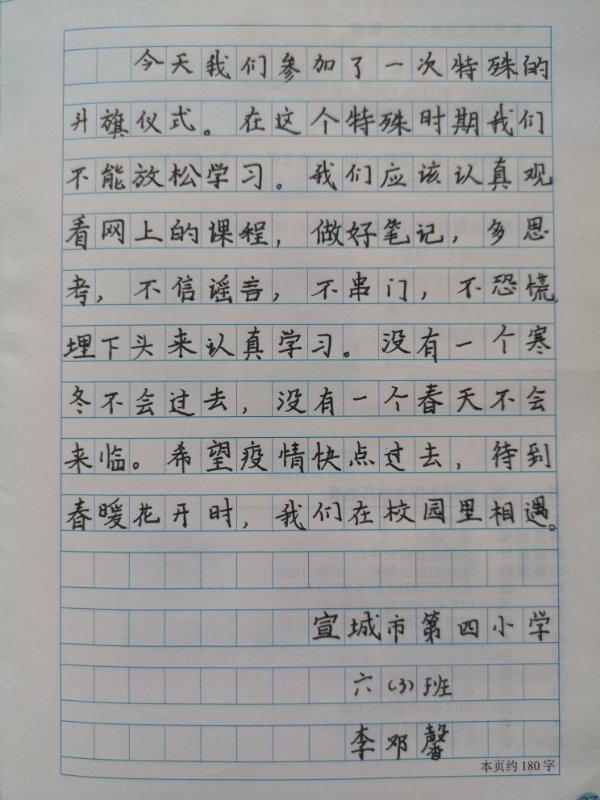 今天我们参加了一次特殊的
升旗仪式。在这个特殊时期我们
不能放松学习。我们应该认真观
看网上的课程，做好笔记，多思
考，不信谣言，不串门，不恐慌，
埋下头来认真学习。没有一个寒
冬不会过去，没有一个春天不会
来临。希望疫情快点过去，待到
春暖花开时，我们在校园里相遇。
宣城市第四小学
六（3）班
李邓馨
本页约180字